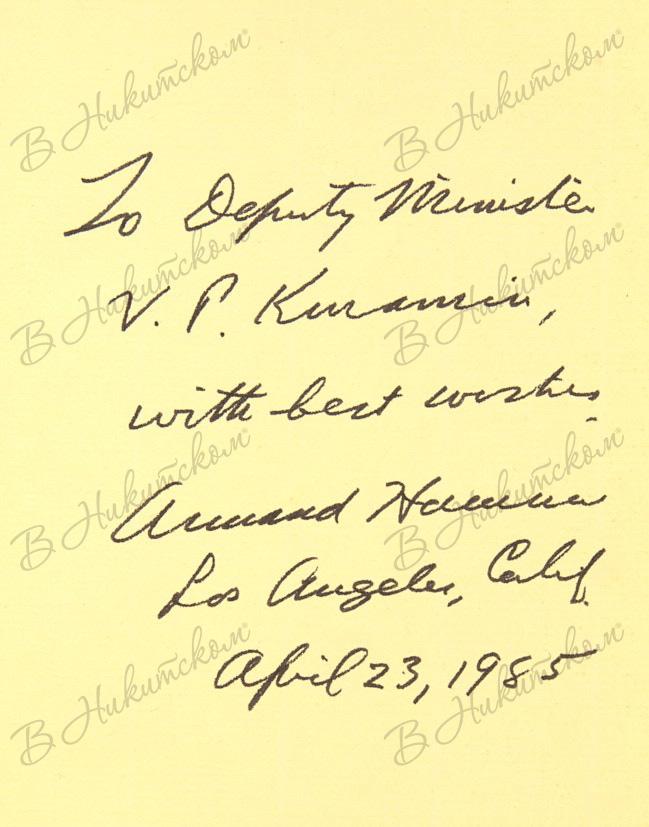 To Deputy Minister
V. P. Kuramin,
with best wishes.
Armand Hammer
Los Angeles, Calif.
April 23, 1985
В Никитском
В Никитском
В Никитском
В Никитском
В Никитском
В Никитском
В Никитском
В Никитском